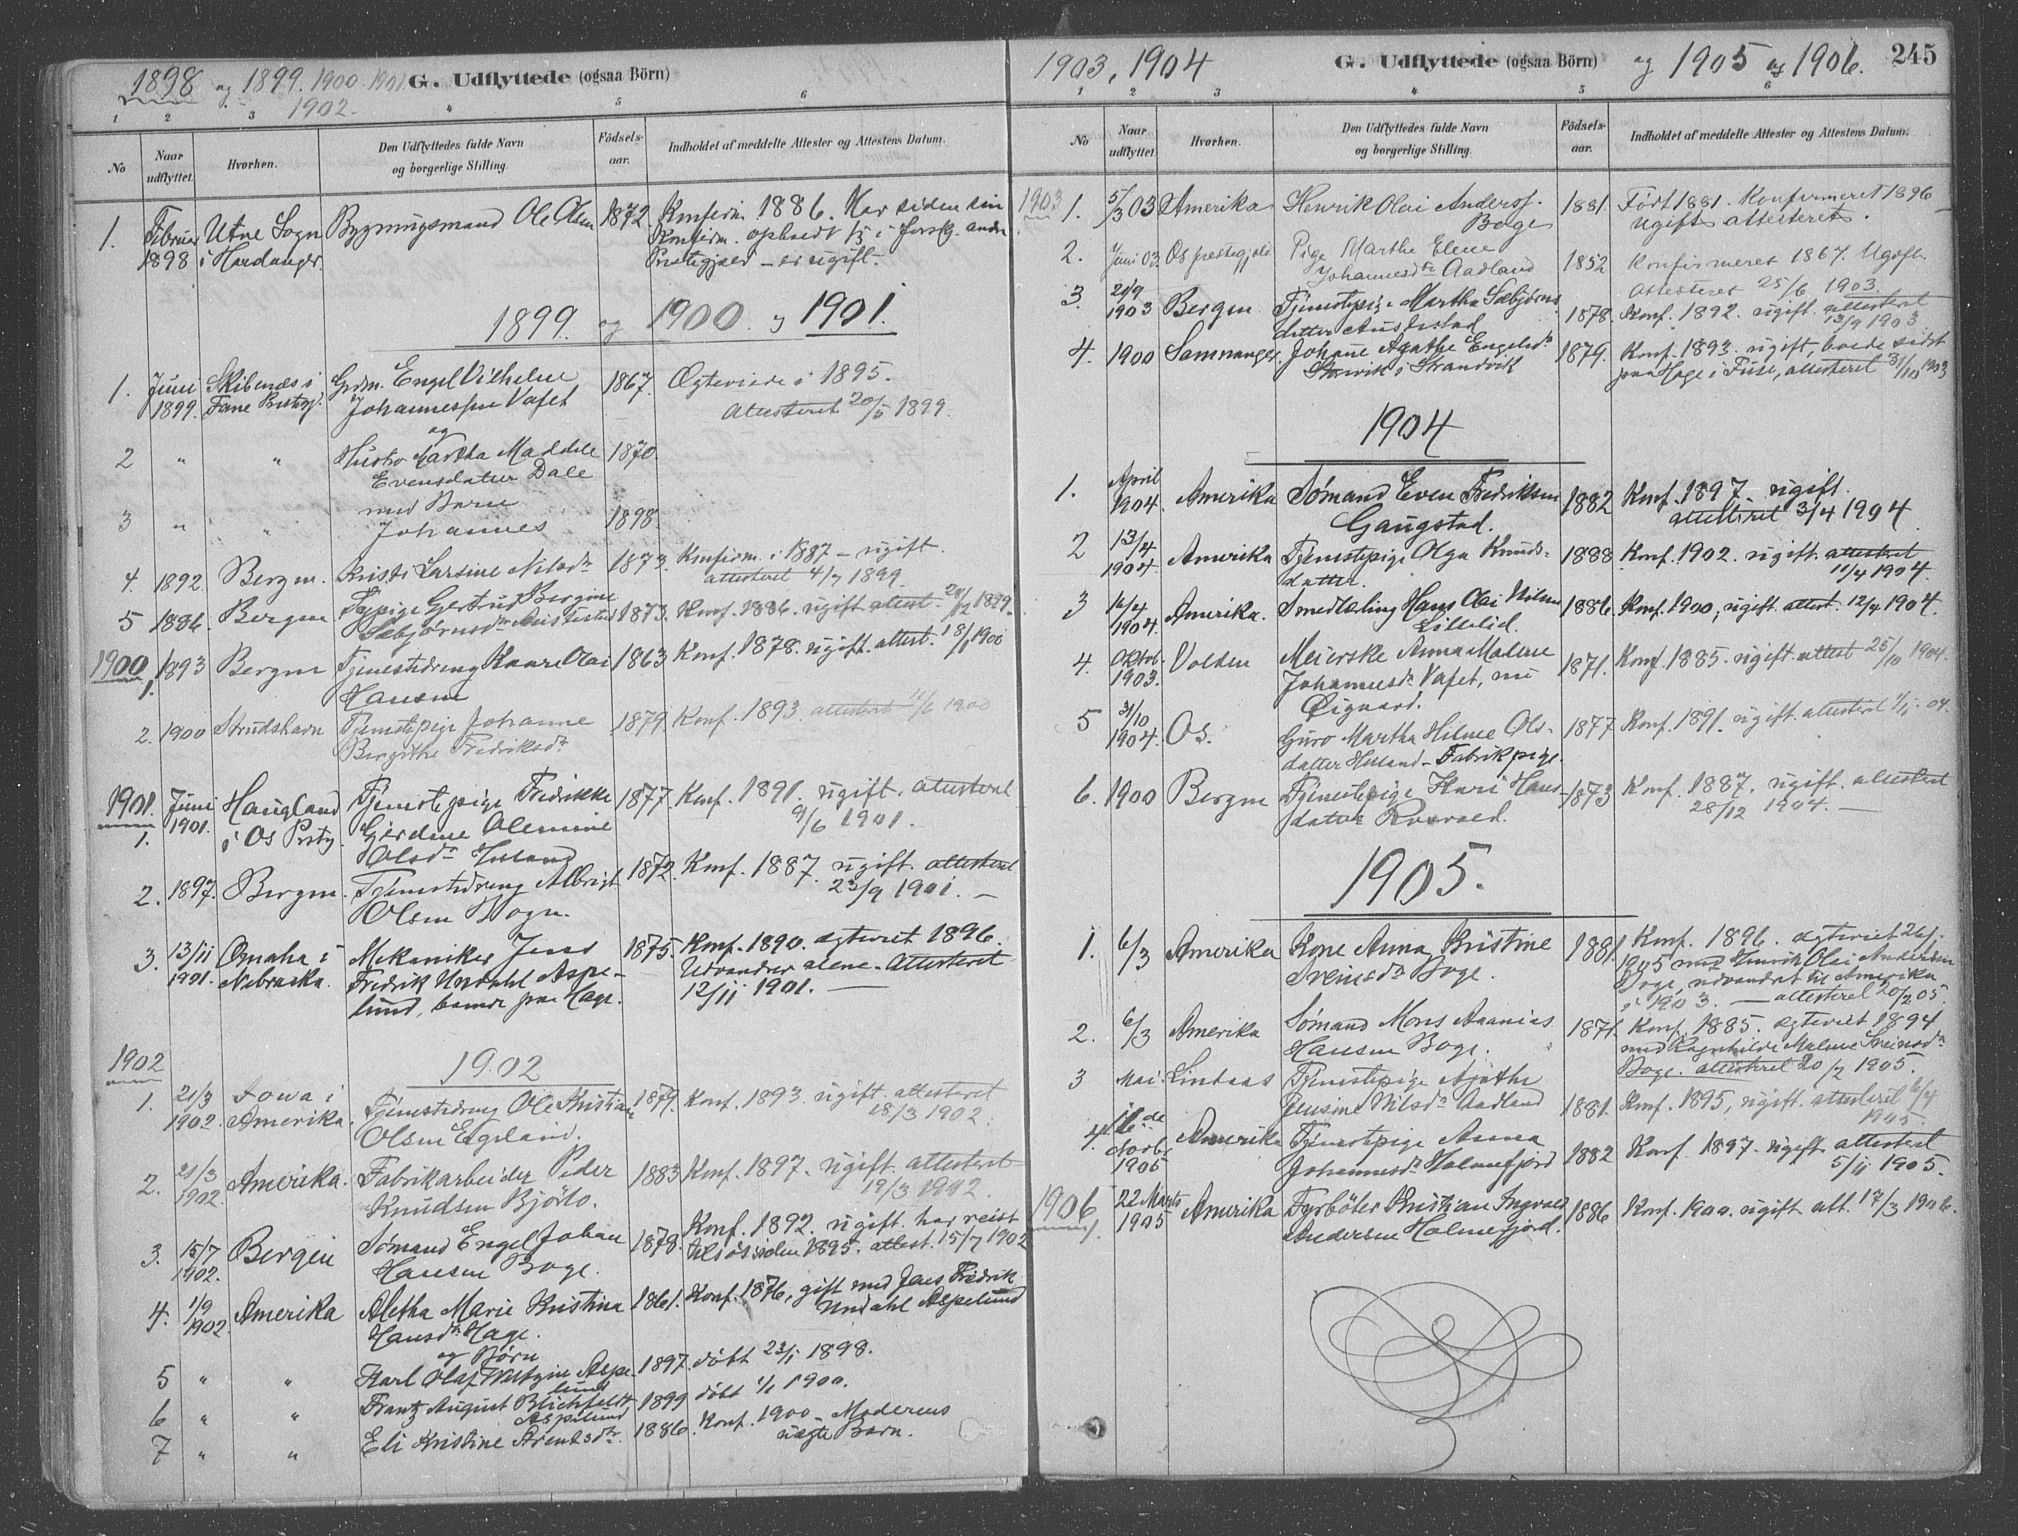 1898 og 1899. 1900. 1901. G. Udflyttede (ogsaa Börn)
1902.
1 2 3 4 5 6
No
Naar udflyttet.
Hvorhen.
Den Udflyttedes fulde Navn og borgerlige Stilling.
Födsels-aar.
Indholdet af meddelte Attester og Attestens Datum.
1. Februar Utne Sogn Bygningsmand Ole Olsen 1872 Konfirm. 1886. Har siden sin
1898 i Hardanger. Konfirm. opholdt i forskj. andre
Prestegjæld – er ugift.
1899. og 1900. og 1901.
1. Juni Skibenæs i Grdm. Engel Vilhelm 1867. Ægteviede i 1895.
1899. Fane Prestegj. Johannessen Vafet Attesteret 20/5 1899.
og
2 " " Hustro Martha Maddele 1870
Evensdatter Dale
med Barn
3 " " Johannes 1898.
4. 1892. Bergen. Kristi Larsine Nilsdr 1873. Konfirm. i 1887 – ugift.
attesteret 4/7 1899.
5 1886. Bergen Tjpige Gertrud Bergine 1873. Konf. 1886. ugift attest. 28/12 1899.
Sæbjørnsdr Austestad
1900 1893 Bergen Tjenestedreng Kaare Olai 1863 Konf. 1878. ugift. attest. 18/1 1900
1. Hansen
2. 1900 Strudshavn Tjenestepige Johanne 1879. Konf. 1893. attesteret 11/6 1900
Bergithe Fredriksdr
1901. Juni Haugland Tjenestepige Fredrikke 1877 Konf. 1891. ugift. attesteret
1. 1901. i Os Prstgj. Gjerdine Olemine 9/6 1901.
Olsdr
2. 1897. Bergen. Tjenestedreng Albrigt 1872. Konf. 1887. ugift. attesteret
Olsen 23/9 1901. –
3. 13/11 Omaha i Mekaniker Jens 1875. Konf. 1890. ægteviet 1896.
1901. Nebraska. Fredrik Undahl Aspe- Udvandrer alene. Attesteret
lund, boende paa Hage. 12/11 1901. –
1902 1902
1. 21/3 Iowa i Tjenestedreng Ole Kristian 1879. Konf. 1893 ugift. attesteret
1902. Amerika. Olsen Egeland. 18/3 1902.
2. 21/3 Amerika. Fabrikarbeider Peder 1883 Konf. 1897. ugift. attesteret
1902. Knudsen Bjöito. 19/3 1902.
3. 15/7 Bergen Sømand Engel Johan 1878. Konf. 1892. ugift. har reist
1902. Hansen Boge. tilsös siden 1895. attest. 15/7 1902
4. 1/9 Amerika Aletha Marie Kristina 1861. Konf. 1876, gift med Jens Fredrik
1902. Hansdr Hage. Undahl Aspelund
og Børn
5 " " Karl Olaf Aspe- 1897. døbt 23/1 1898.
lund
6 " " Frantz August Blichfeldt 1899 døbt 1/1 1900.
Aspelund
7 " " Eli Kristine Arentsdr. 1886. Konf. 1900 – Moderens
uægte Barn.
1903, 1904 G. Udflyttede (ogsaa Börn) og 1905 og 1906. 245
1 2 3 4 5 6
No
Naar udflyttet.
Hvorhen.
Den Udflyttedes fulde Navn og borgerlige Stilling.
Födsels-aar.
Indholdet af meddelte Attester og Attestens Datum.
1903 1. 5/3 03 Amerika Henrik Olai Anderss. 1881. Født 1881. Konfirmeret 1896 –
Boge ugift attesteret.
2. Juni 03. Os prestegjeld Pige Marthe Elene 1852 Konfirmeret 1867. Ugift.
Johannesdr Aadland Attesteret 25/6 1903.
3. 29/9 Bergen Tjenestepige Martha Sæbjørns- 1878. Konf. 1892. ugift. attesteret
1903 datter Austestad 13/9 1903
4. 1900 Samnanger. Johane Agathe Engelsdr 1879. Konf. 1893. ugift, boede sidst
Storvik i Strandvik paa Hage i Fuse, attesteret 31/10 1903
1904
1. April Amerika Sømand Even Fredriksen 1882 Konf. 1897. ugift.
1904. Gaugstad. attesteret 3/4 1904.
2 13/4 Amerika Tjenestepige Olga Knuds- 1888 Konf. 1902. ugift. attesteret
1904 datter. 11/4 1904.
3 16/4 Amerika. Smedlæling Hans Olai Nilsen 1886. Konf. 1900, ugift. attest. 12/4 1904.
1904. Lillelid.
4. Oktob. Volden Meierske Anna Malene 1871. Konf. 1885. ugift. attest 25/10 1904.
1903. Johannesdr Vafet, nu
Øigaard.
5 31/10 Os. Guro Martha Hilme Ols- 1877 Konf. 1891. ugift attesteret 1/11 04.
1904. datter – Fabrikpige.
6. 1900 Bergen Tjenestepige Kari Hans- 1873 Konf. 1887. ugift. attesteret
datter 28/12 1904. –
1905.
1. 6/3 Amerika Kone Anna Kristine 1881. Konf. 1896. ægteviet 26/1
Sveinsdr Boge. 1905 med Henrik Olai Andersen
Boge, udvandret til Amerika
i 1903. – attesteret 20/2 05.
2. 6/3 Amerika Sømand Mons Ananias 1871. Konf. 1885. ægteviet 1894
Hansen Boge. med Ragnhilde Malene Sveinsdr
Boge. attesteret 20/2 1905.
3 Mai. Lindaas Tjenestepige Agathe
Jensine Nilsdr Aadland 1881. Konf. 1895, ugift. attesteret 6/4
1905.
4. 16de Amerika Tjenestepige Anna 1882 Konf. 1897. ugift. attesteret
Novbr Johannesdr Holmefjord 5/11 1905.
1905
1906 22 Marts Amerika Fyrböter Kristian Ingvald 1886 Konf. 1900. ugift att. 17/3 1906.
1. 1905 Andersen Holmefjord.